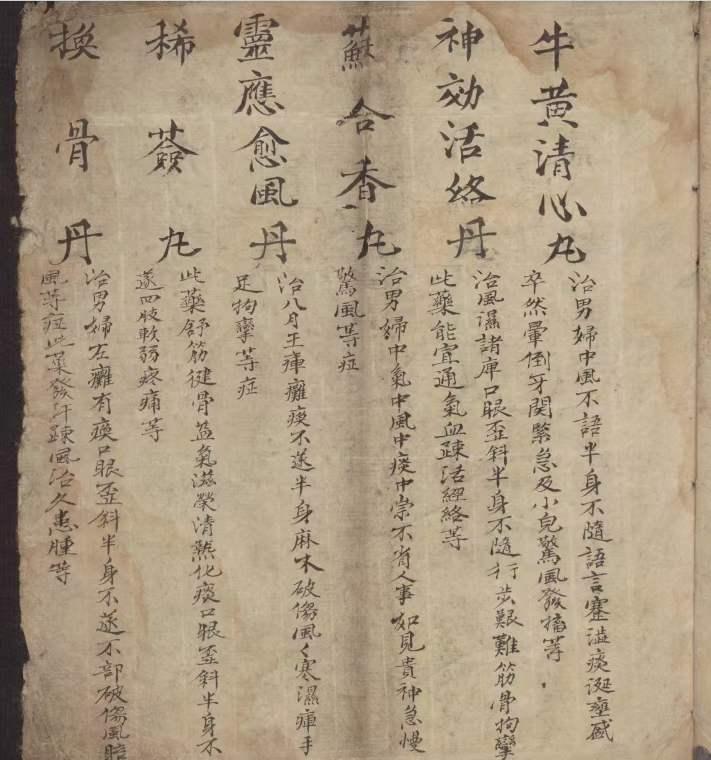 牛黄清心丸
治男婦中風不語半身不隨語言蹇澁痰涎壅盛
卒然暈倒牙関緊急及小兒驚風發搐等
神効活絡丹
治風濕諸庫口眼歪斜半身不隨行步艱難筋骨拘攣
此藥能宣通氣血疎活經絡等
蘇合香丸
治男婦中氣中風中痰中祟不省人事如見貴神急慢
驚風等症
靈應愈風丹
治八月王痺癱痪不遂半身麻木破傷風々寒濕痺手
足拘攣等症
稀薟丸
此藥舒筋健骨益氣滋榮清熱化痰口眼歪斜半身不
遂四肢軟弱疼痛等
換骨丹
治男婦左癱有痪口眼歪斜半身不遂不部破傷風暗
風等症此藥發汗疎風治久患腫等